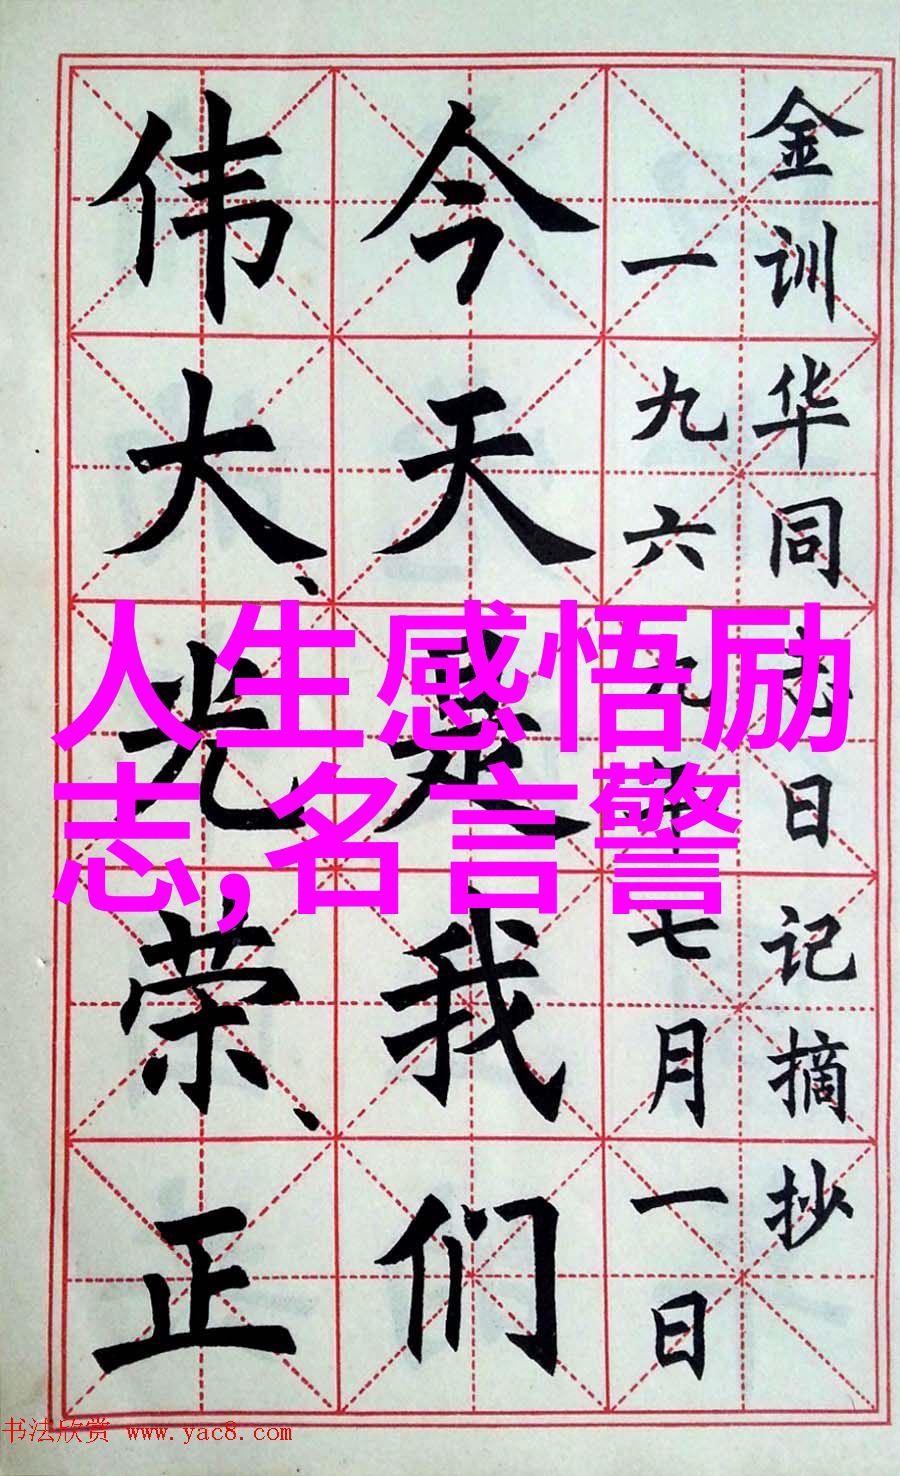 金训华同志日记摘抄
一九六九年七月一日
今天是我们
伟大、光荣、正
人生感悟励
志,名言警
书法欣赏 www.yac8.com